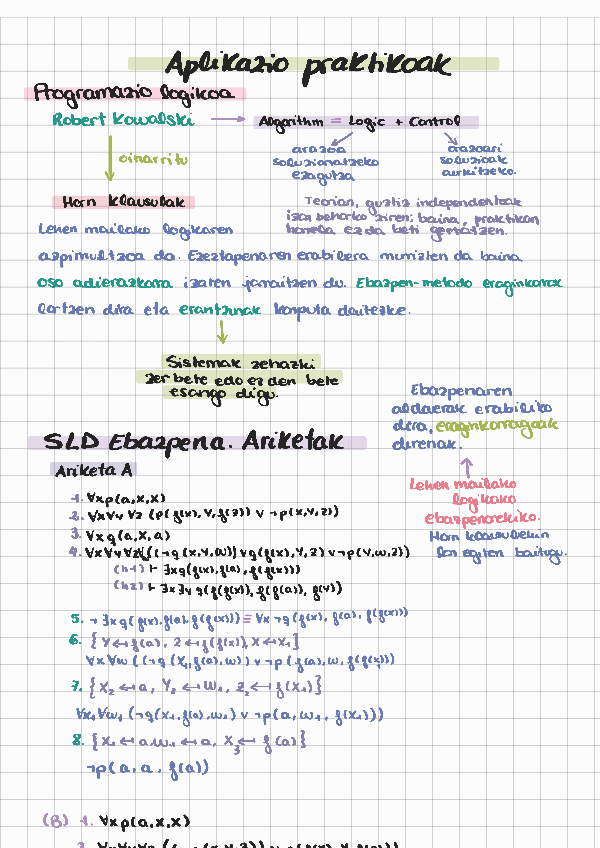 Aplikazio praktikoak
Programazio logikoa
Robert Kowalski → Algorithm = Logic + Control
oinarritu
arazoa
soluzionatzeko
ezagutza
arazoari
soluzioak
aurkitzeko.
Horn klausulak
Teorian, guztiz independenteak
izan beharko ziren; baina, praktikan
honela ez da beti gertatzen.
Lehen mailako logikaren
azpimultzoa da. Ezeztapenaren erabilera murrizten da baina
oso adierazkorra izaten jarraitzen du. Ebazpen-metodo eraginkorrak
lortzen dira eta erantzunak konputa daitezke.
Sistemak zehazki
zer bete edo ez den bete
esango digu.
Ebazpenaren
aldaerak erabiliko
dira, eraginkorragoak
direnak.
Lehen mailako
logikako
ebazpenarekiko.
Horn klausulekin
lan egiten baitugu.
SLD Ebazpena. Ariketak
Ariketa A
1. ∀x p(a,x,x)
2. ∀x∀y ∀z (p(f(x),y,f(z)) ∨ ¬p(x,y,z))
3. ∀x q(a,x,a)
4. ∀x∀y∀z((¬q(x,y,w)) ∨ q(f(x),y,z) ∨ ¬p(y,w,z))
(h1) ⊢ ∃x q(f(x),f(a),f(f(x)))
(h2) ⊢ ∃x∃y q(f(x)), f(f(a)), f(y))
5. ¬∃x q(f(x),f(a),f(f(x))) ≡ ∀x ¬q(f(x), f(a), f(f(x)))
6. {Y←f(a), Z←f(f(x)), X←X₁}
∀x ∀w ((¬q(x₁,f(a),w)) ∨ ¬p(f(a),w,f(f(x₁)))
7. {X₂←a, Y₂←W₁, Z₂←f(X₁)}
∀x₁∀w₁ (¬q(x₁,f(a),w₁) ∨ ¬p(a,w₁,f(x₁)))
8. {X₁←a, w₁←a, X₃←f(a)}
¬p(a, a, f(a))
(B) 1. ∀x p(a,x,x)